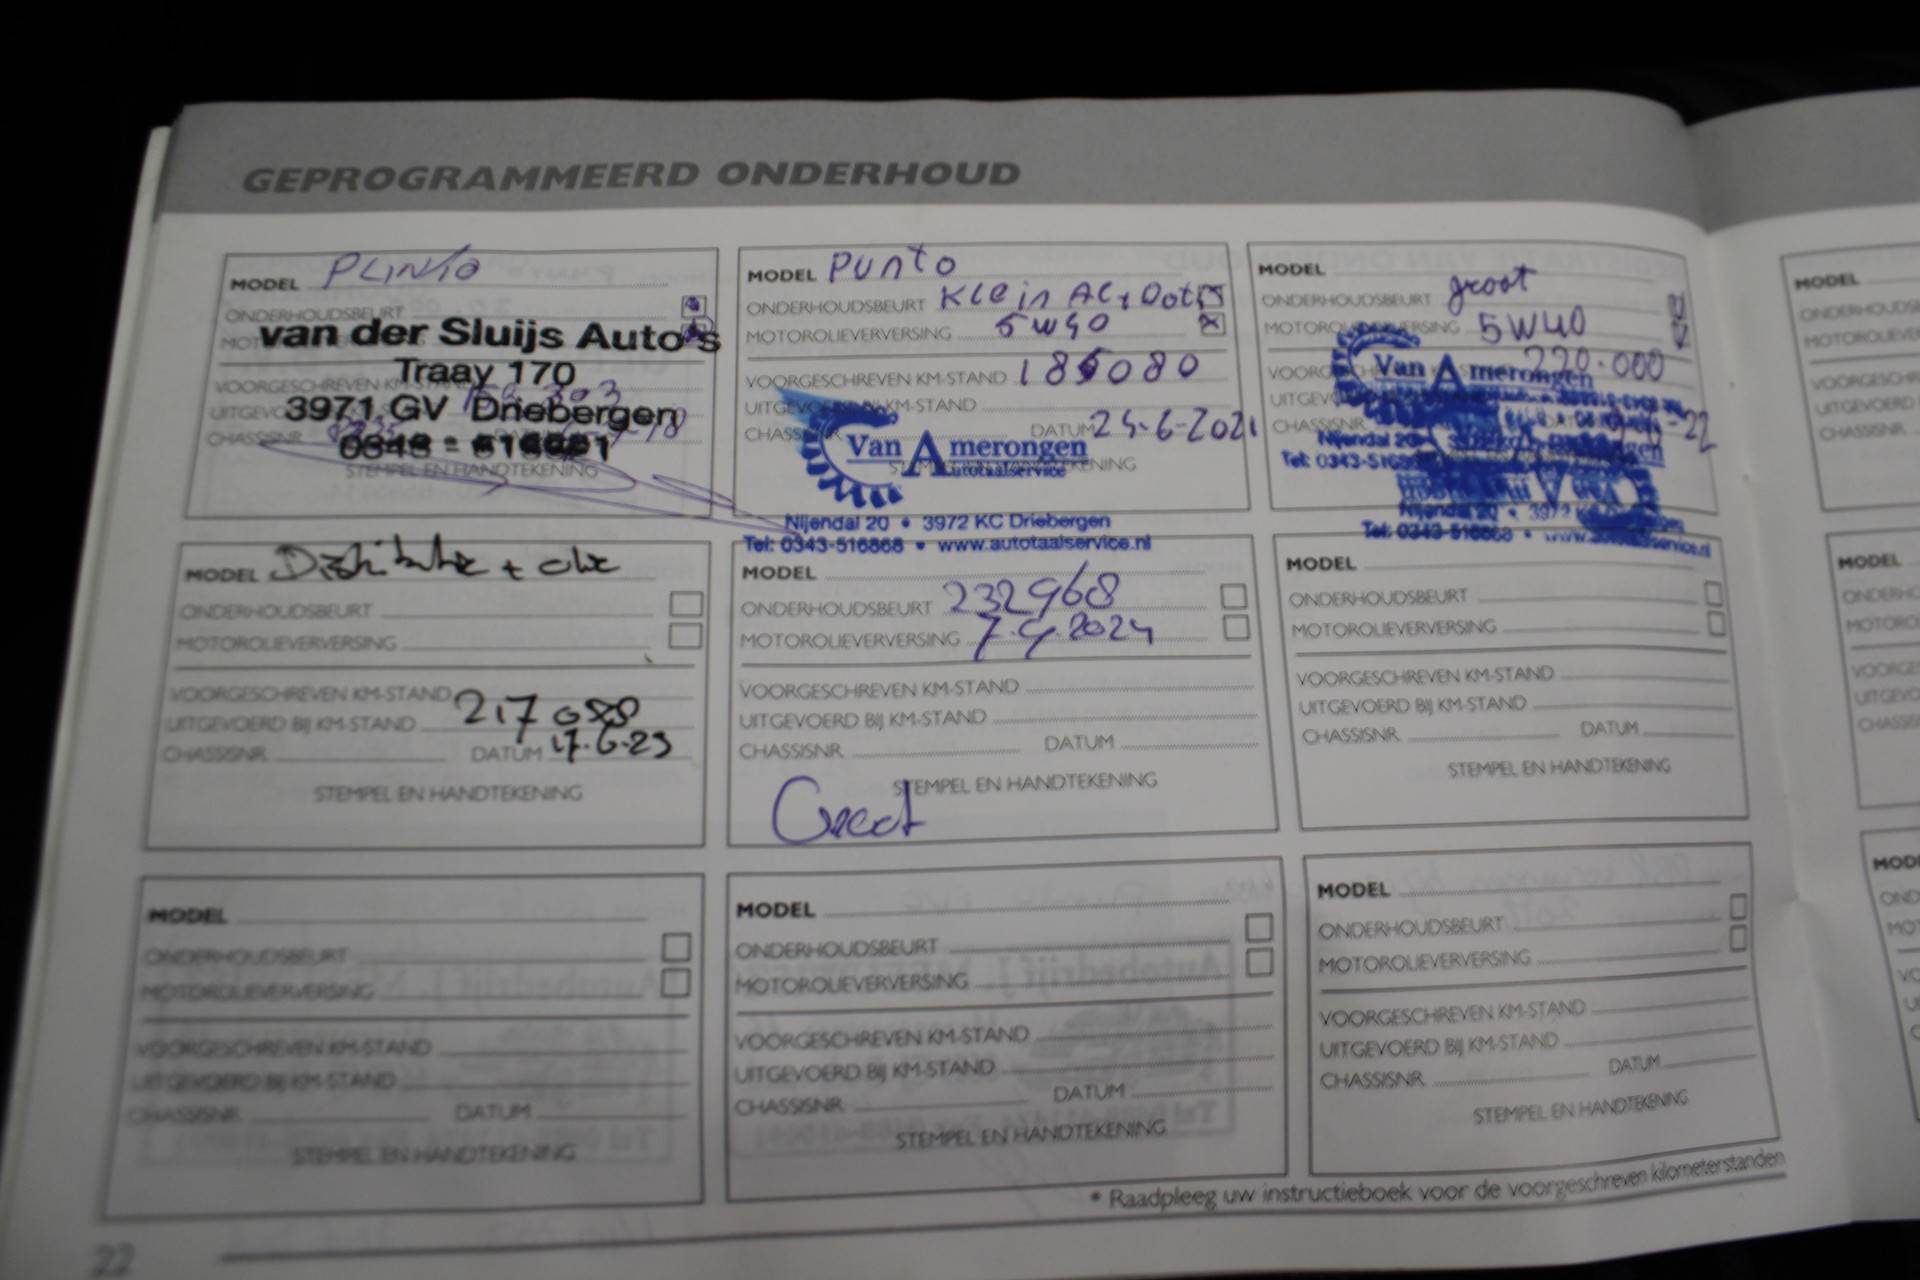 GEPROGRAMMEERD ONDERHOUD
MODEL PUNTO
ONDERHOUDSBEURT
van der Sluijs Auto's
Traay 170
VOORGESCHREVEN KM-STAND
3971 GV Driebergen
CHASSISNR
STEMPEL EN HANDTEKENING
MODEL PUNTO
ONDERHOUDSBEURT Klein AC + Dot
MOTOROLIEVERVERSING 5W40
VOORGESCHREVEN KM-STAND 185080
UITGEVOERD BIJ KM-STAND
CHASSISNR DATUM 25-6-2021
STEMPEL EN HANDTEKENING
Van Amerongen
autotaalservice
Nijendal 20 • 3972 KC Driebergen
Tel: 0343-516868 • www.autotaalservice.nl
MODEL
ONDERHOUDSBEURT groot
MOTOROLIEVERVERSING 5W40
220.000
Van Amerongen
Nijendal 20
Nijendal 20 • 3972
Tel: 0343-516868
MODEL Distributie + olie
ONDERHOUDSBEURT
MOTOROLIEVERVERSING
VOORGESCHREVEN KM-STAND
UITGEVOERD BIJ KM-STAND 217088
CHASSISNR DATUM 17-6-23
STEMPEL EN HANDTEKENING
MODEL
ONDERHOUDSBEURT 232968
MOTOROLIEVERVERSING 7-9-2024
VOORGESCHREVEN KM-STAND
UITGEVOERD BIJ KM-STAND
CHASSISNR DATUM
STEMPEL EN HANDTEKENING
Groot
MODEL
ONDERHOUDSBEURT
MOTOROLIEVERVERSING
VOORGESCHREVEN KM-STAND
UITGEVOERD BIJ KM-STAND
CHASSISNR DATUM
STEMPEL EN HANDTEKENING
MODEL
ONDERHOUDSBEURT
MOTOROLIEVERVERSING
VOORGESCHREVEN KM-STAND
UITGEVOERD BIJ KM-STAND
CHASSISNR DATUM
STEMPEL EN HANDTEKENING
MODEL
ONDERHOUDSBEURT
MOTOROLIEVERVERSING
VOORGESCHREVEN KM-STAND
UITGEVOERD BIJ KM-STAND
CHASSISNR DATUM
STEMPEL EN HANDTEKENING
MODEL
ONDERHOUDSBEURT
MOTOROLIEVERVERSING
VOORGESCHREVEN KM-STAND
UITGEVOERD BIJ KM-STAND
CHASSISNR DATUM
STEMPEL EN HANDTEKENING
* Raadpleeg uw instructieboek voor de voorgeschreven kilometerstanden
22
MODEL
MODEL